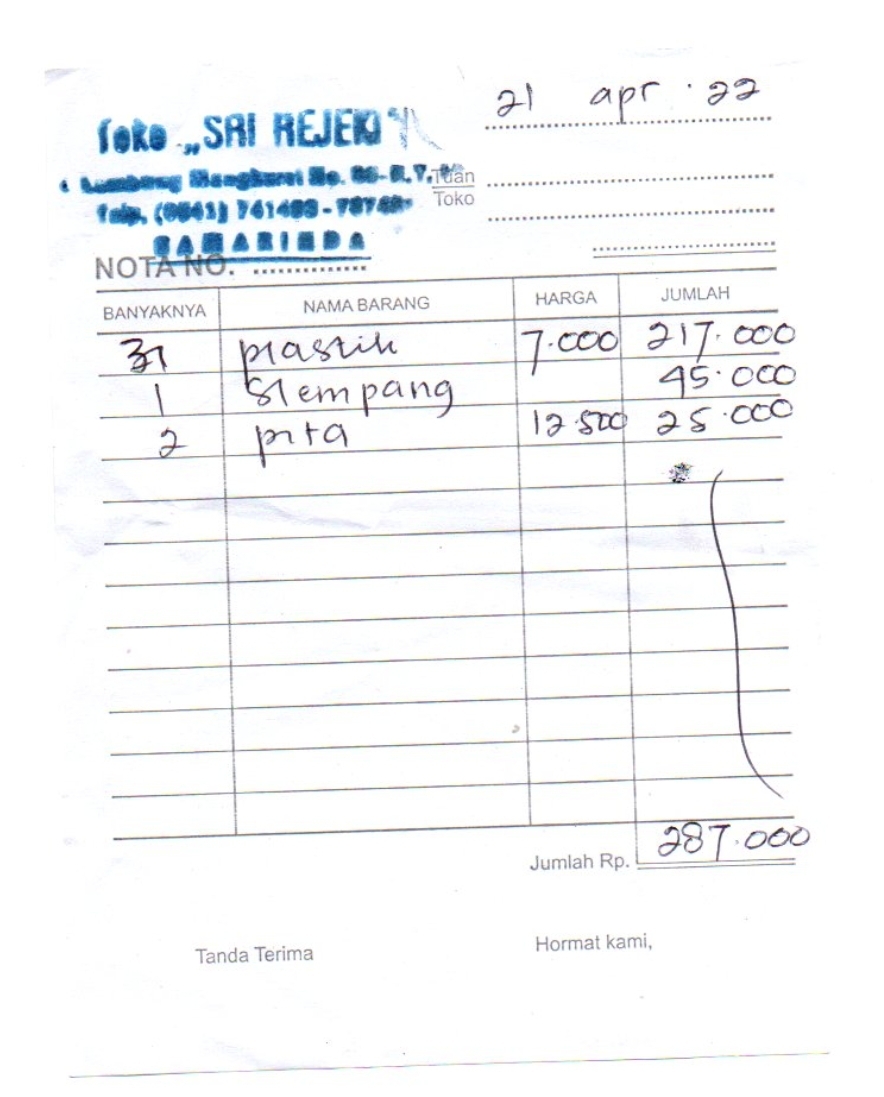 21 apr '22
Toko „SRI REJEKI"
Lambung Mangkurat No. R.T.
Telp. (0541) 741483 -
SAMARINDA
Tuan
Toko
NOTA NO.
BANYAKNYA NAMA BARANG HARGA JUMLAH
31 plastik 7.000 217.000
1 Slempang 45.000
2 pita 12.500 25.000
Jumlah Rp. 287.000
Tanda Terima Hormat kami,